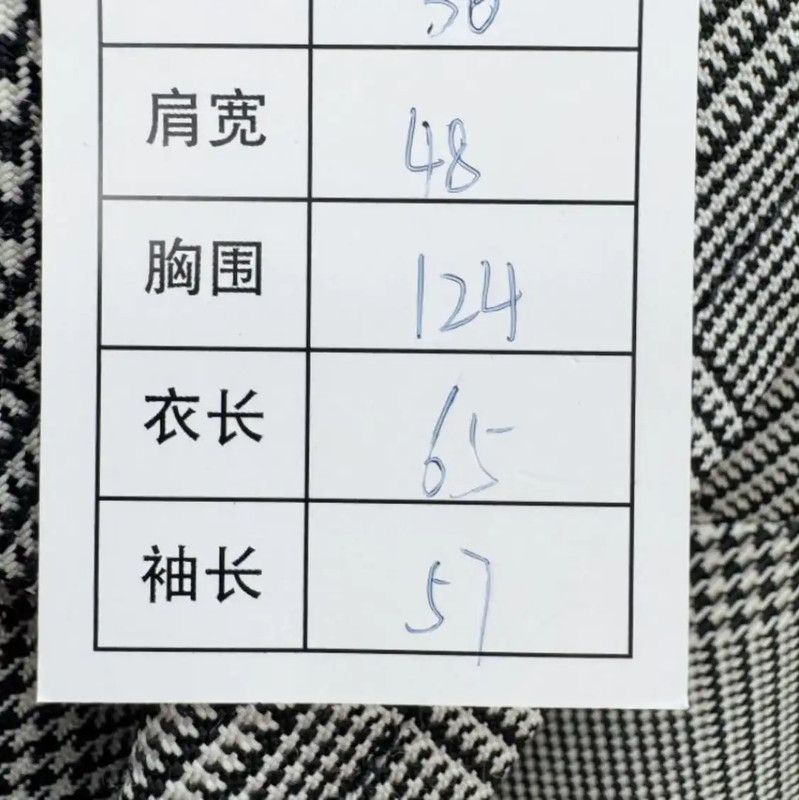 肩宽 48
胸围 124
衣长 65
袖长 57